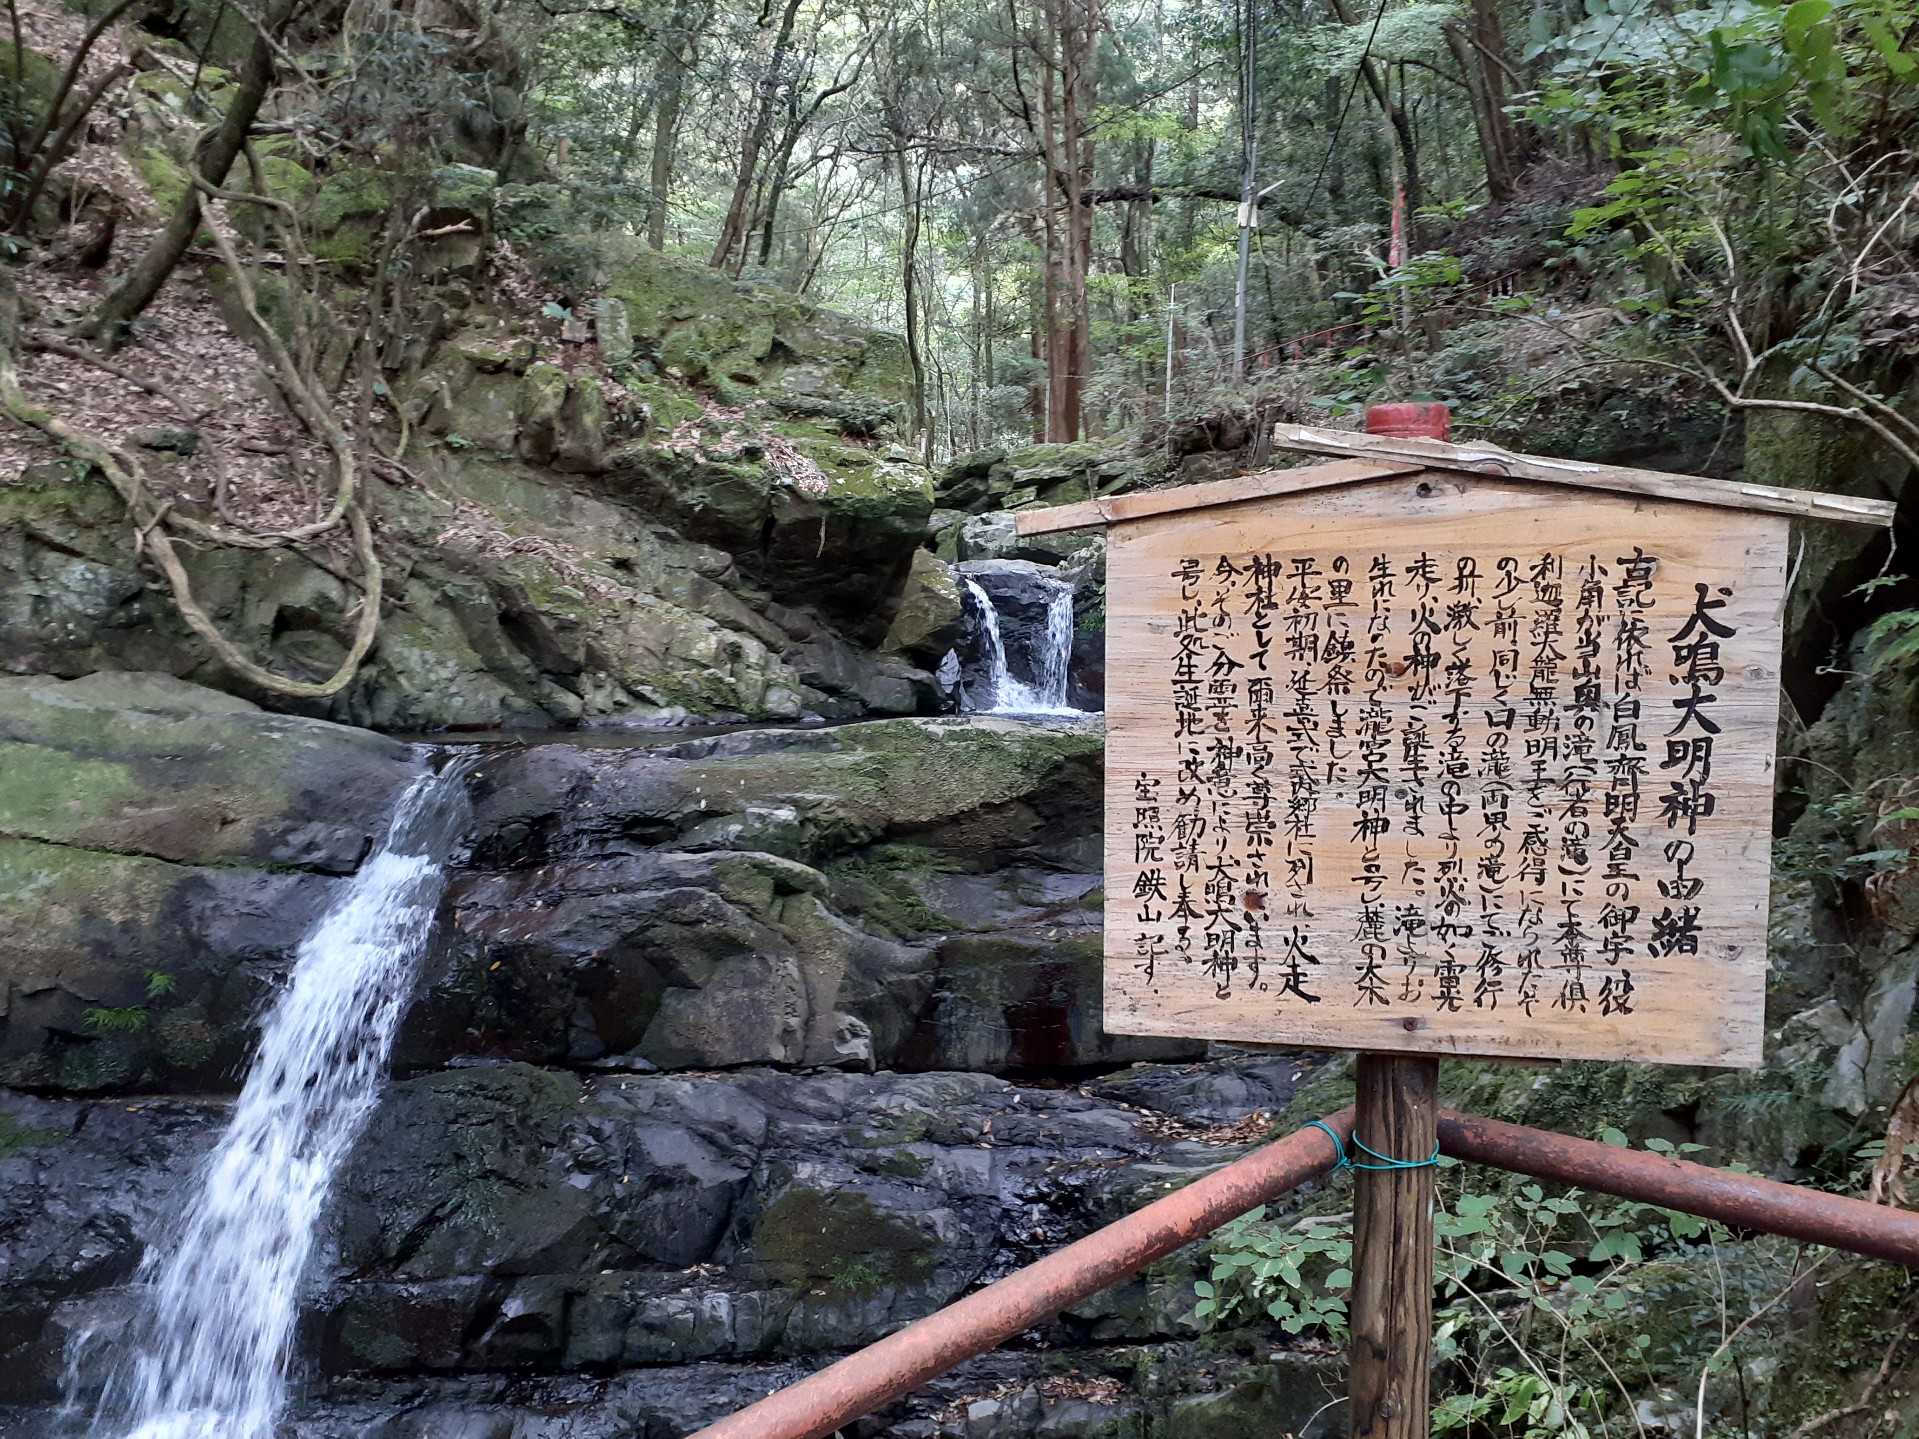 犬鳴大明神の由緒
古記に依れば白鳳齊明天皇の御宇、役
小角が当山奥の滝(行者の滝)にて本尊倶
利迦羅大龍無動明王をご感得になられたや
の少し前、同じく口の瀧(両界の滝)にてご修行
の折、激しく落下する滝の中より烈火の如く電光
走り、火の神がご誕生されました。滝よりお
生れになったので瀧宮大明神と号し麓の大木
の里に鎮祭しました。
平安初期、延喜式で式内郷社に列され、火走
神社として爾来高く尊崇されています。
今、そのご分霊を神意により犬鳴大明神と
号し、此処生誕地に改め勧請し奉る。
宝照院 鉄山 記す。